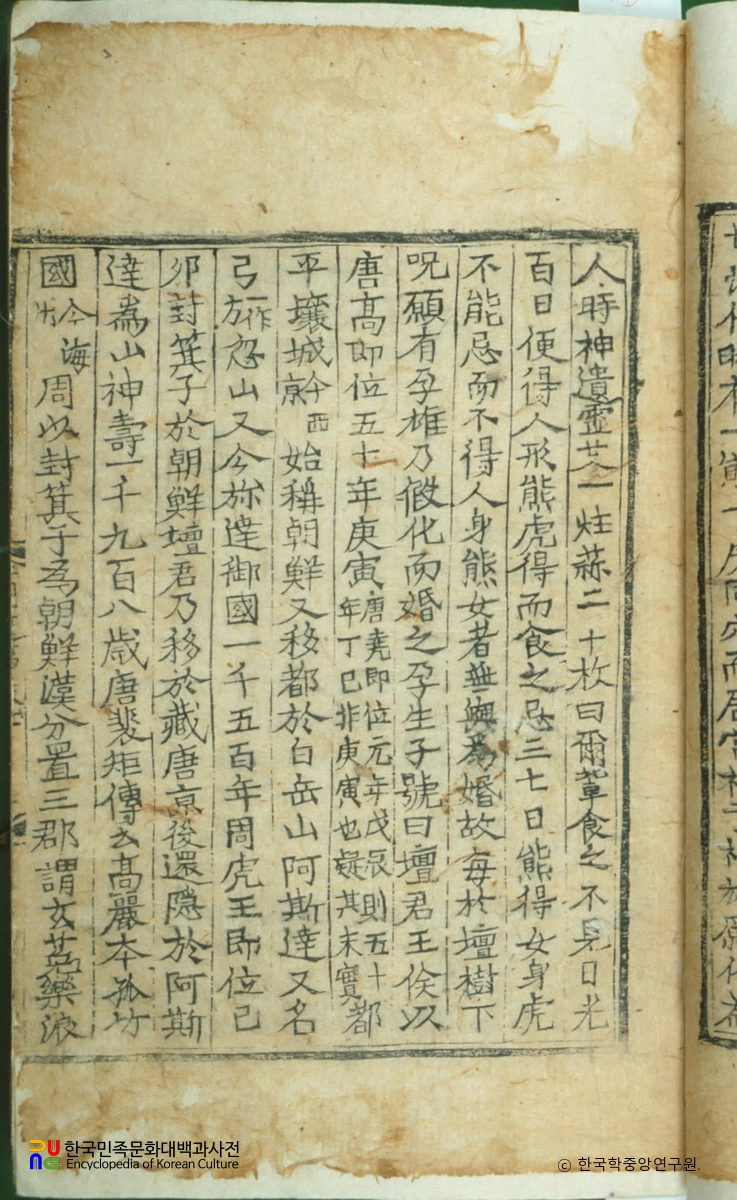 人時神遺靈艾一炷蒜二十枚曰爾軰食之不見日光
百日便得人形熊虎得而食之忌三七日熊得女身虎
不能忌而不得人身熊女者無與為婚故每於壇樹下
呪願有孕雄乃假化而婚之孕生子號曰壇君王倹以
唐髙即位五十年庚寅唐堯即位元年戊辰則五十年丁巳非庚寅也疑其未實都
平壤城今西京始稱朝鮮又移都於白岳山阿斯達又名
弓一作方忽山又今旀達御國一千五百年周虎王即位己
卯封箕子於朝鮮壇君乃移於藏唐京後還隱於阿斯
達為山神壽一千九百八歳唐裴矩傳云髙麗本孤竹
國今海州周以封箕子為朝鮮漢分置三郡謂玄菟樂浪
한국민족문화대백과사전
Encyclopedia of Korean Culture
© 한국학중앙연구원.